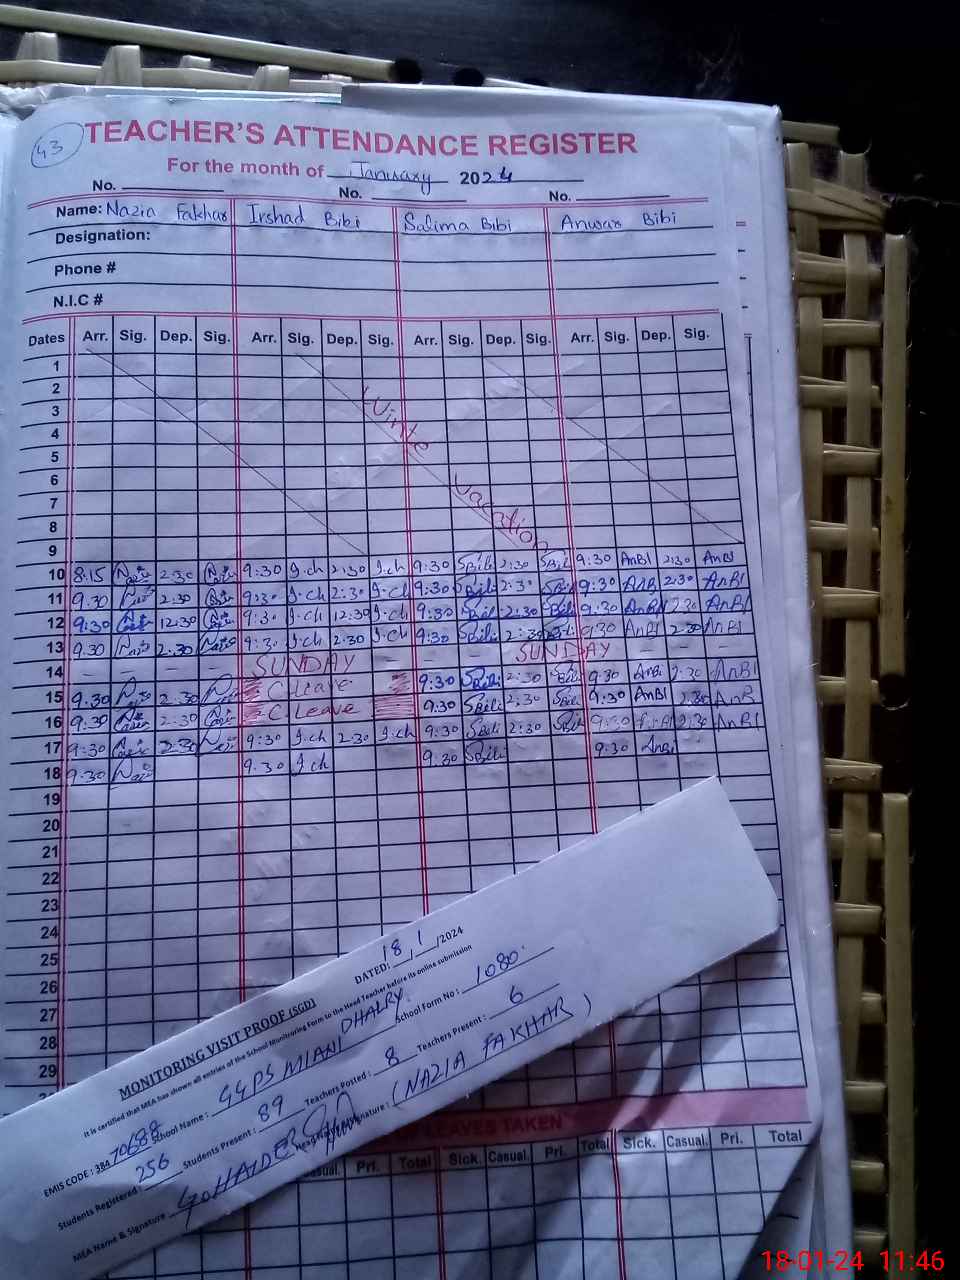 43
TEACHER'S ATTENDANCE REGISTER
For the month of January 2024
No. No. No.
Name: Nazia Fakhar Irshad Bibi Salima Bibi Anwar Bibi
Designation:
Phone #
N.I.C #
Dates Arr. Sig. Dep. Sig. Arr. Sig. Dep. Sig. Arr. Sig. Dep. Sig. Arr. Sig. Dep. Sig.
1
2
3
Winte
4
5
6
vacation
7
8
9
10 8:15 2:30 9:30 I.ch 2:30 I.ch 9:30 SBili 2:30 SBili 9:30 AnBI 2:30 AnBI
11 9:30 2:30 9:30 I.ch 2:30 I.ch 9:30 SBili 2:30 SBili 9:30 AnBI 2:30 AnBI
12 9:30 12:30 9:30 I.ch 12:30 I.ch 9:30 SBili 12:30 SBili 9:30 AnBI 2:30 AnBI
13 9:30 2:30 9:30 I.ch 2:30 I.ch 9:30 SBili 2:30 SBili 9:30 AnBI 2:30 AnBI
14 SUNDAY SUNDAY
15 9:30 2:30 C.leave 9:30 SBili 2:30 SBili 9:30 AnBI 2:30 AnBI
16 9:30 2:30 C.Leave 9:30 SBili 2:30 SBili 9:30 AnBI 2:30 AnB
17 9:30 2:30 9:30 I.ch 2:30 I.ch 9:30 SBili 2:30 SBili 9:30 2:30 AnBI
18 9:30 9:30 I.ch 9:30 SBili 9:30 AnBi
19
20
21
22
23
24
25
26
27
28
29
MONITORING VISIT PROOF (SGD) DATED: 18/1/2024
It is certified that MEA has shown all entries of the School Monitoring Form to the Head Teacher before its online submission
EMIS CODE: 384 70688 School Name: GGPS MIANI DHALRY School Form No: 1080
Students Registered: 256 Students Present: 89 Teachers Posted: 8 Teachers Present: 6
MEA Name & Signature Signature: (NAZIA FAKHAR)
OF LEAVES TAKEN
Casual. Pri. Total Sick. Casual. Pri. Total Sick. Casual. Pri. Total
18-01-24 11:46